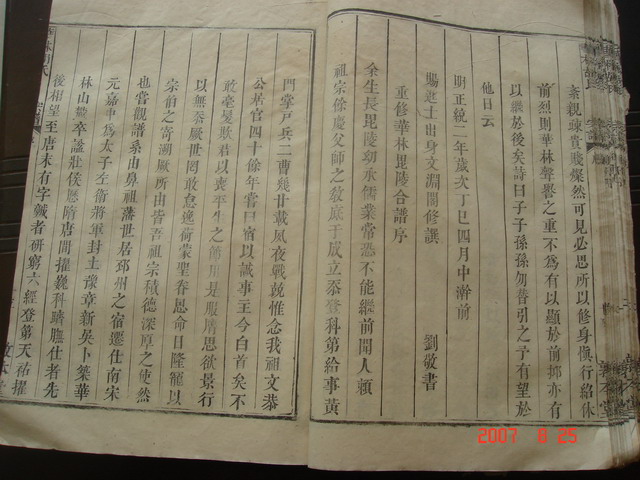 奈親疎貴賤燦然可見必思所以修身慎行紹休
前烈則華林聲譽之重不為有以顯於前抑亦有
以繼於後矣昔曰子子孫孫勿替引之予有望於
他日云
明正統二年歲次丁巳四月中澣前
賜進士出身文淵閣修譔 劉敬書
重修華林毘陵合譜序
余生長毘陵幼承儒業常恐不能繼前聞人賴
祖宗餘慶父師之敎底于成立忝登科第給事黃
門掌戶兵二曹幾廿載夙夜戰兢惟念我祖文恭
公居官四十餘年嘗曰宿以誠事主今白首矣不
敢毫髮欺君以喪平生之節用是服膺思欲景行
以無忝厥世罔敢怠逸荷蒙聖眷恩命日隆寵以
宗伯之寄溯厥所由皆吾祖宗積德深厚之使然
也嘗觀譜系由鼻祖藩世居邳州之宿遷仕南宋
元嘉中為太子左衛將軍封土豫章新吳卜築華
林山麓卒謚壯侯應隋唐間擢巍科躋膴仕者先
後相望至唐末有字鍼者研窮六經登第天祐擢
2007 8 25